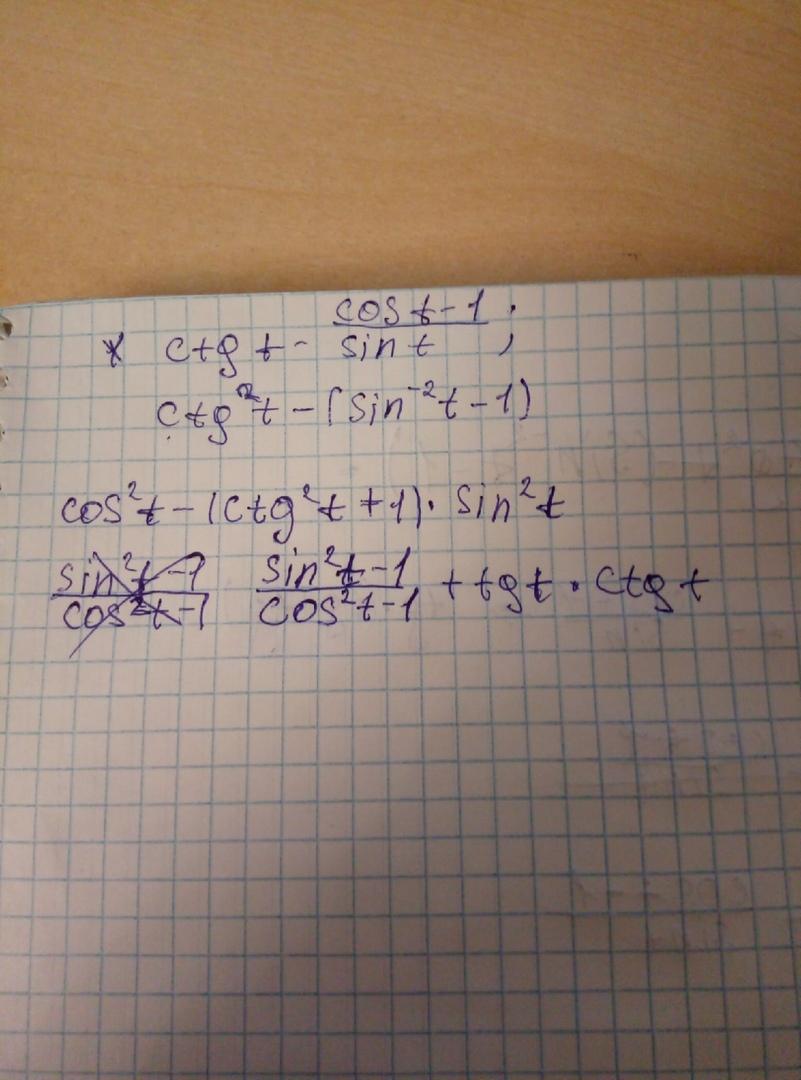 * ctg t - \frac{cos t - 1}{sin t};
ctg²t - (sin⁻²t - 1)
cos²t - (ctg²t + 1) · sin²t
\frac{sin²t - 1}{cos²t - 1} + tg t · ctg t